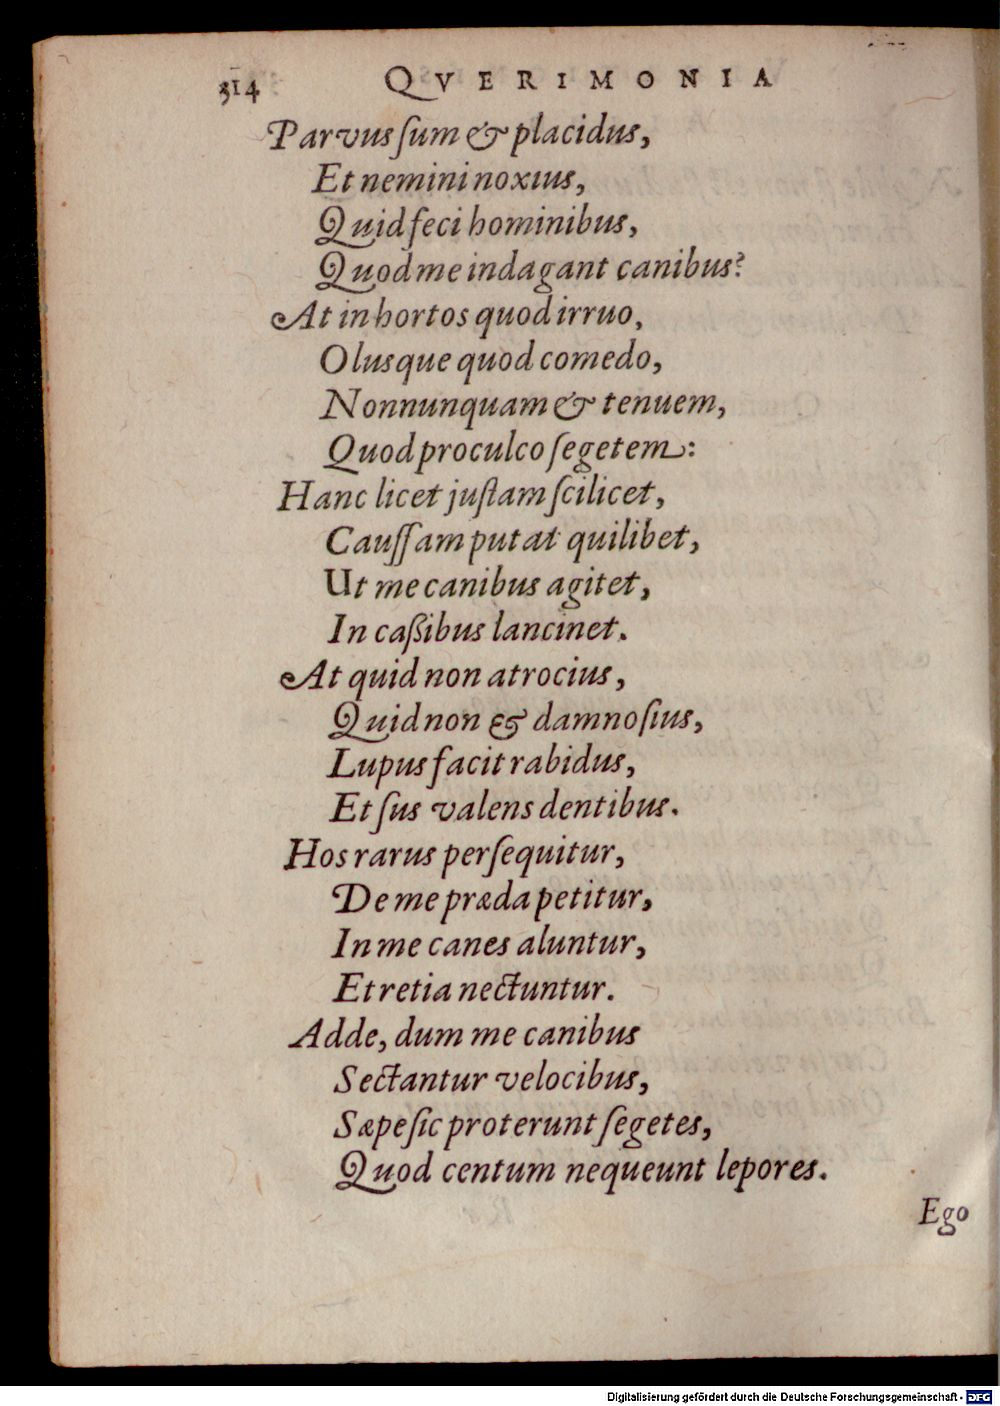 314 QVERIMONIA
Parvus ſum & placidus,
Et nemini noxius,
Quid feci hominibus,
Quod me indagant canibus?
At in hortos quod irruo,
Olusque quod comedo,
Nonnunquam & tenuem,
Quod proculco ſegetem:
Hanc licet juſtam ſcilicet,
Cauſſam putat quilibet,
Ut me canibus agitet,
In caßibus lancinet.
At quid non atrocius,
Quid non & damnoſius,
Lupus facit rabidus,
Et ſus valens dentibus.
Hos rarus perſequitur,
De me præda petitur,
In me canes aluntur,
Et retia nectuntur.
Adde, dum me canibus
Sectantur velocibus,
Sæpe ſic proterunt ſegetes,
Quod centum nequeunt lepores.
Ego
Digitalisierung gefördert durch die Deutsche Forschungsgemeinschaft - DFG